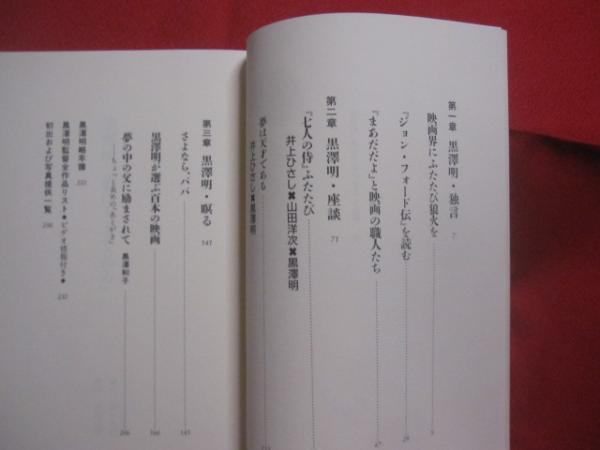 第一章 黒澤明・独言 7
映画界にふたたび狼火を 9
『ジョン・フォード伝』を読む 29
『まあだだよ』と映画の職人たち 47
第二章 黒澤明・座談 71
『七人の侍』ふたたび
井上ひさし✖山田洋次✖黒澤明
夢は天才である
井上ひさし✖黒澤明
第三章 黒澤明・瞑る 141
さよなら、パパ 143
黒澤明が選ぶ百本の映画 166
夢の中の父に励まされて 黒澤和子 206
──ちょっと長めの、あとがき
黒澤明略年譜
黒澤明監督全作品リスト●ビデオ情報付き●
初出および写真提供一覧